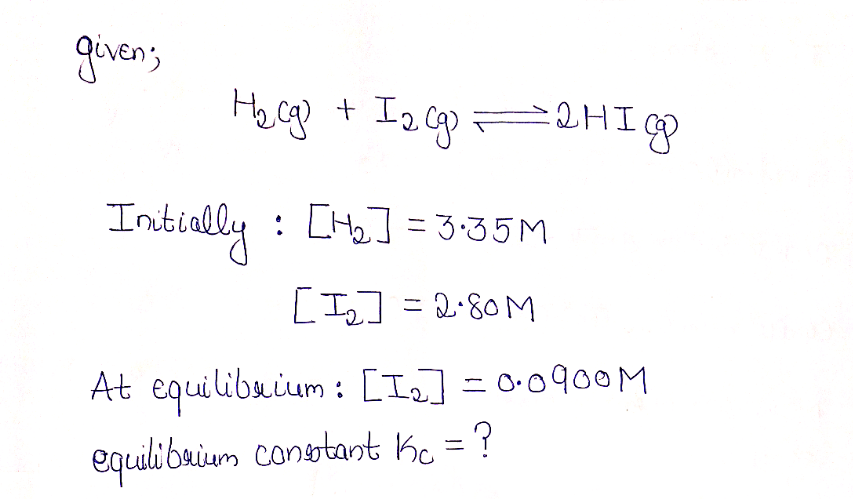 given;
H₂(g) + I₂(g) ⇌ 2HI(g)
Initially : [H₂] = 3.35M
[I₂] = 2.80M
At equilibrium : [I₂] = 0.0900M
equilibrium constant Kc = ?